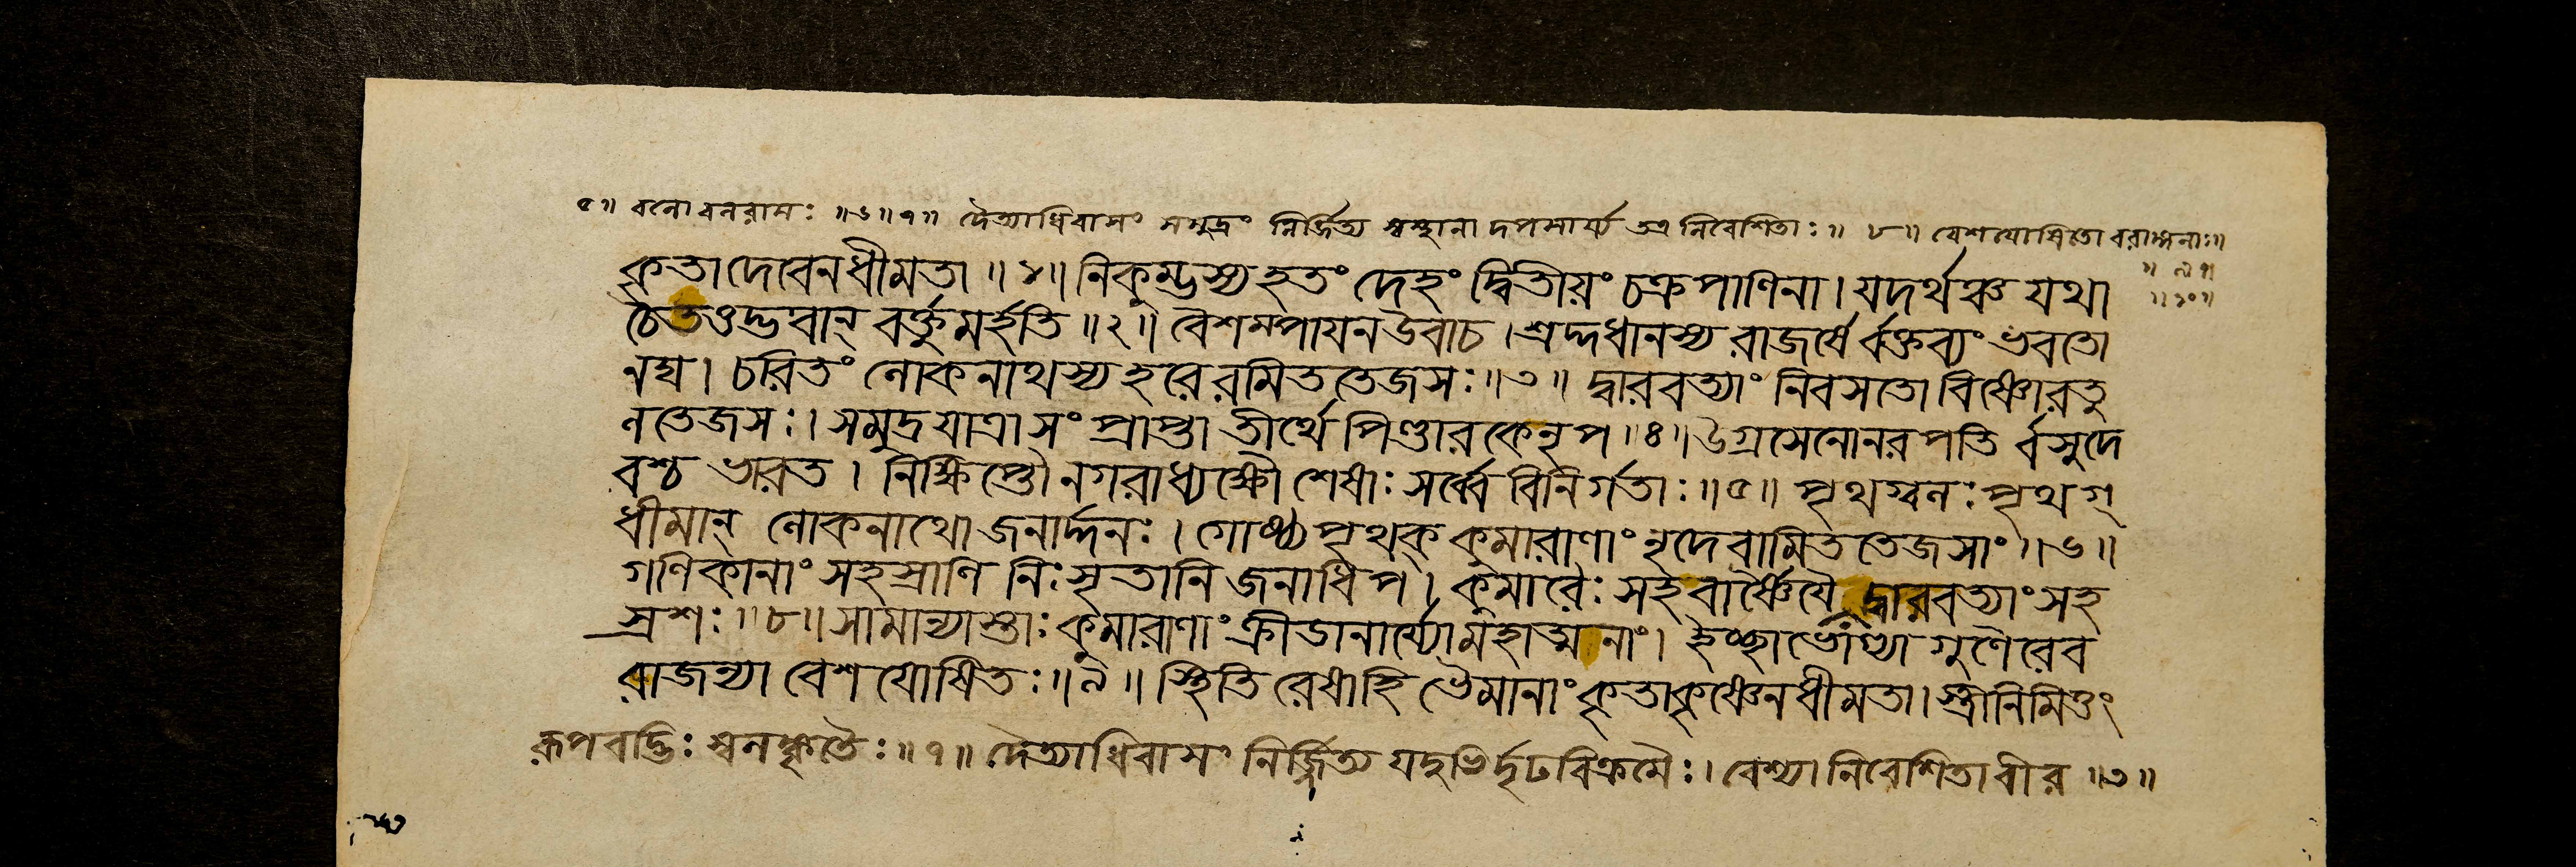 ৫॥ বলো বলরামঃ ॥৬॥৭॥ দৈত্যাধিবাসং সমুদ্রং নির্জিত্য স্বস্থানা দপসার্য্য তত্র নিবেশিতাঃ॥ ৮॥ বেশযোষিতো বরাঙ্গনাঃ॥
॥ ৯॥
॥১০॥
কৃতা দেবেন ধীমতা ॥১॥ নিকুম্ভস্য হতং দেহং দ্বিতীয়ং চক্রপাণিনা। যদর্থঞ্চ যথা
চৈতত্তদ্ভবান্ বক্তুমর্হতি ॥২॥ বৈশম্পায়ন উবাচ। শ্রদ্দধানস্য রাজর্ষে র্বক্তব্যং ভবতো
নঘ। চরিতং লোকনাথস্য হরে রমিততেজসঃ॥৩॥ দ্বারবত্যাং নিবসতো বিষ্ণোরতু
লতেজসঃ। সমুদ্রযাত্রা সং প্রাপ্তা তীর্থে পিণ্ডারকে নৃপ ॥৪॥ উগ্রসেনো নরপতি র্বসুদে
বশ্চ ভারত। নিক্ষিপ্তৌ নগরাধ্যক্ষৌ শেষাঃ সর্ব্বে বিনির্গতাঃ॥৫॥ পৃথগ্বলঃ পৃথগ্
ধীমান্ লোকনাথো জনার্দ্দনঃ। গোষ্ঠ্যঃ পৃথক্ কুমারাণাং নৃদেবামিততেজসাং॥৬॥
গণিকানাং সহস্রাণি নিঃসৃতানি জনাধিপ। কুমারৈঃ সহ বার্ষ্ণেয়ৈ
রূপবদ্ভিঃ স্বলঙ্কৃতৈঃ॥৭॥ দৈত্যাধিবাসং নির্জ্জিত্য যদুভির্দৃঢবিক্রমৈঃ। বেশ্যা নিবেশিতা বীর ॥৩॥
দ্বারবত্যাং সহ
স্রশঃ॥৮॥ সামান্যাস্তাঃ কুমারাণাং ক্রীডানার্য্যো মহাত্মনাং। ইচ্ছাভোগ্যা গুণৈরেব
রাজন্যা বেশযোষিতঃ॥৯॥ স্থিতি রেষা হি ভৈমানাং কৃতা কৃষ্ণেন ধীমতা। স্ত্রীনিমিত্তং